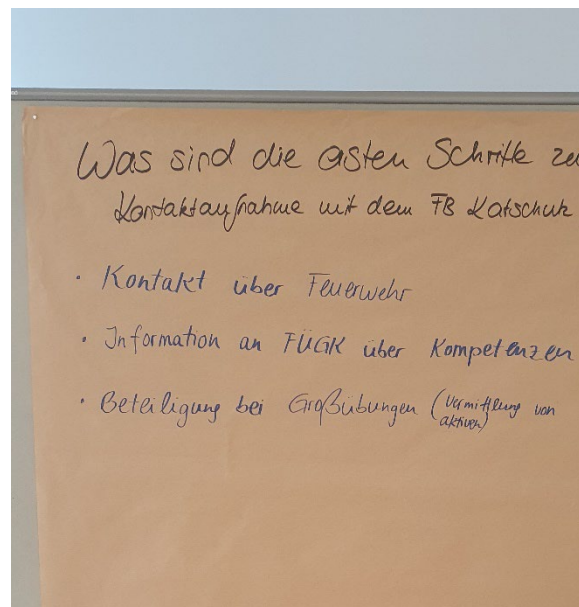 Was sind die ersten Schritte zu
Kontaktaufnahme mit dem FB Katschutz
· Kontakt über Feuerwehr
· Information an FÜGK über Kompetenzen
· Beteiligung bei Großübungen (Vermittlung von
aktiven)